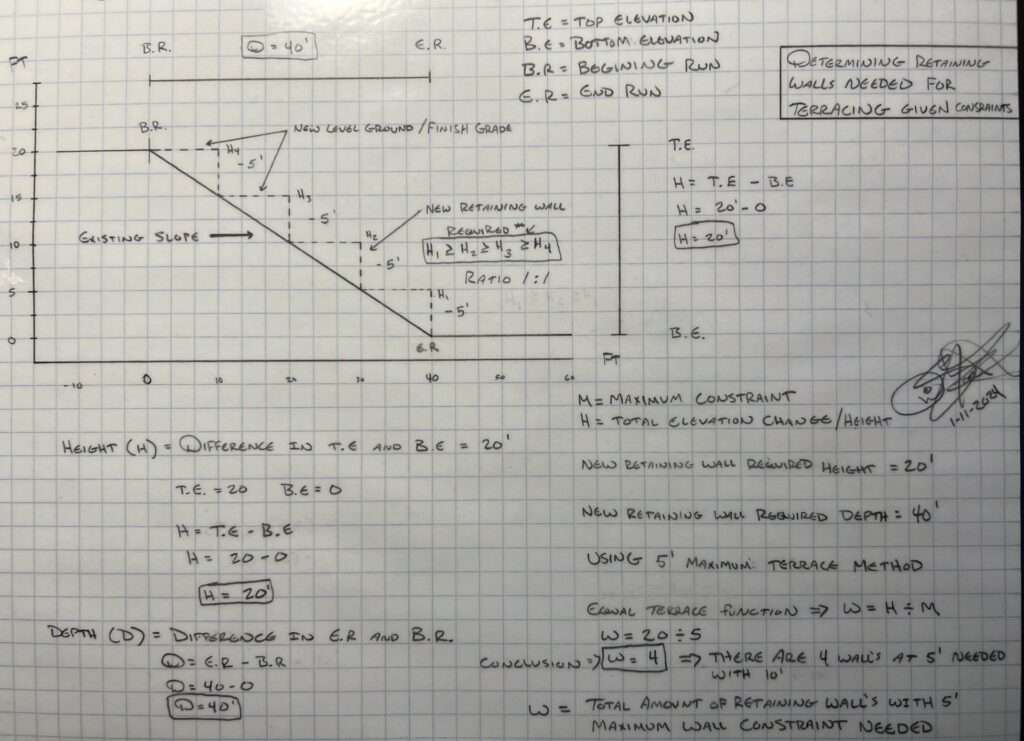 T.E = TOP ELEVATION
B.E = BOTTOM ELEVATION
B.R = BEGINING RUN
E.R = END RUN
DETERMINING RETAINING
WALLS NEEDED FOR
TERRACING GIVEN CONSRAINTS
B.R.
D = 40'
E.R.
FT
25
20
15
10
5
0
B.R.
NEW LEVEL GROUND / FINISH GRADE
H4
- 5'
H3
- 5'
EXISTING SLOPE
NEW RETAINING WALL
REQUIRED
H1 ≥ H2 ≥ H3 ≥ H4
RATIO 1:1
H2
- 5'
H1
- 5'
E.R
-10
0
10
20
30
40
50
60
FT
T.E.
H = T.E - B.E
H = 20' - 0
H = 20'
B.E.
M = MAXIMUM CONSTRAINT
H = TOTAL ELEVATION CHANGE/HEIGHT
1-11-2024
HEIGHT (H) = DIFFERENCE IN T.E AND B.E = 20'
T.E. = 20 B.E = 0
H = T.E - B.E
H = 20 - 0
H = 20'
DEPTH (D) = DIFFERENCE IN E.R AND B.R.
D = E.R - B.R
D = 40 - 0
D = 40'
NEW RETAINING WALL REQUIRED HEIGHT = 20'
NEW RETAINING WALL REQUIRED DEPTH = 40'
USING 5' MAXIMUM TERRACE METHOD
EQUAL TERRACE FUNCTION => W = H ÷ M
W = 20 ÷ 5
CONCLUSION => W = 4 => THERE ARE 4 WALL'S AT 5' NEEDED
WITH 10'
W = TOTAL AMOUNT OF RETAINING WALL'S WITH 5'
MAXIMUM WALL CONSTRAINT NEEDED